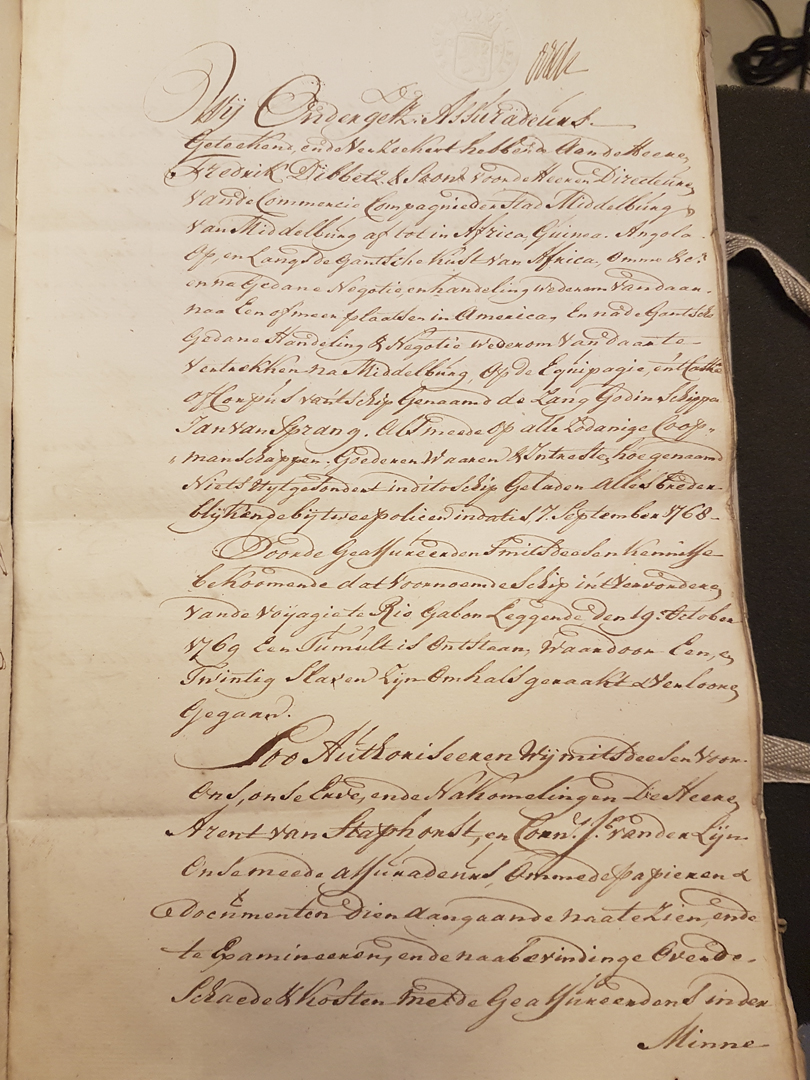 Wij Ondergetz. Assuradeurs
Geteekend, ende Verzeekert hebbende Aan de Heeren
Fredrik Dibbetz & Soon voor de Heeren Directeuren
van de Commercie Compagnie der Stad Middelburg
van Middelburg af tot in Africa, Guinea, Angola
Op en Langs de Gantsche Kust van Africa, Omme &c:
en na Gedane Negotie, en handeling wederom Vandaar
naa Een of meer plaatsen in America, En na de Gantsche
Gedane Handeling & Negotie wederom Van daar te
Vertrekken na Middelburg, Op de Equipagie, en 't Casko
of Corpus van 't schip Genaamd de Zang Godin Schipper
Jan van Sprang. Als meede Op alle Zodanige Coop-
manschappen, Goederen Waaren & Intresten, hoe genaamd
Niets Uytgesondert in dito schip Geladen Alles breder
blijkende bij twee policen in datis, 7. September 1768
Door de Geassureerden Smits deesen Kennisse
bekoomende dat Voornoemde Schip in 't Vervorderen
van de Voyagie te Rio Gabon Leggende den 19. October
1769 Een Tumult is Ontstaan, Waardoor Een, en
Twintig Slaven Zijn Omhals geraakt & Verlooren
Gegaan.
Soo Authoriseeren Wij mits deesen Voor
Ons, onse Erve, ende Nakomelingen De Heeren
Arent van Staphorst, en Corn.s J.s van der Lijn
Onse meede assuradeurs, Omme de papieren &
Documenten dien aangaande naa te Zien, ende
te Examineeren, ende naa bevindinge Over de
Schaede & Kosten met de Geassureerdens in der
Minne